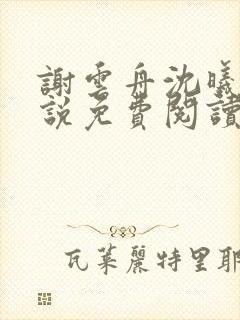 謝雲舟沈曦
說免費閱讀
瓦萊麗特里耶